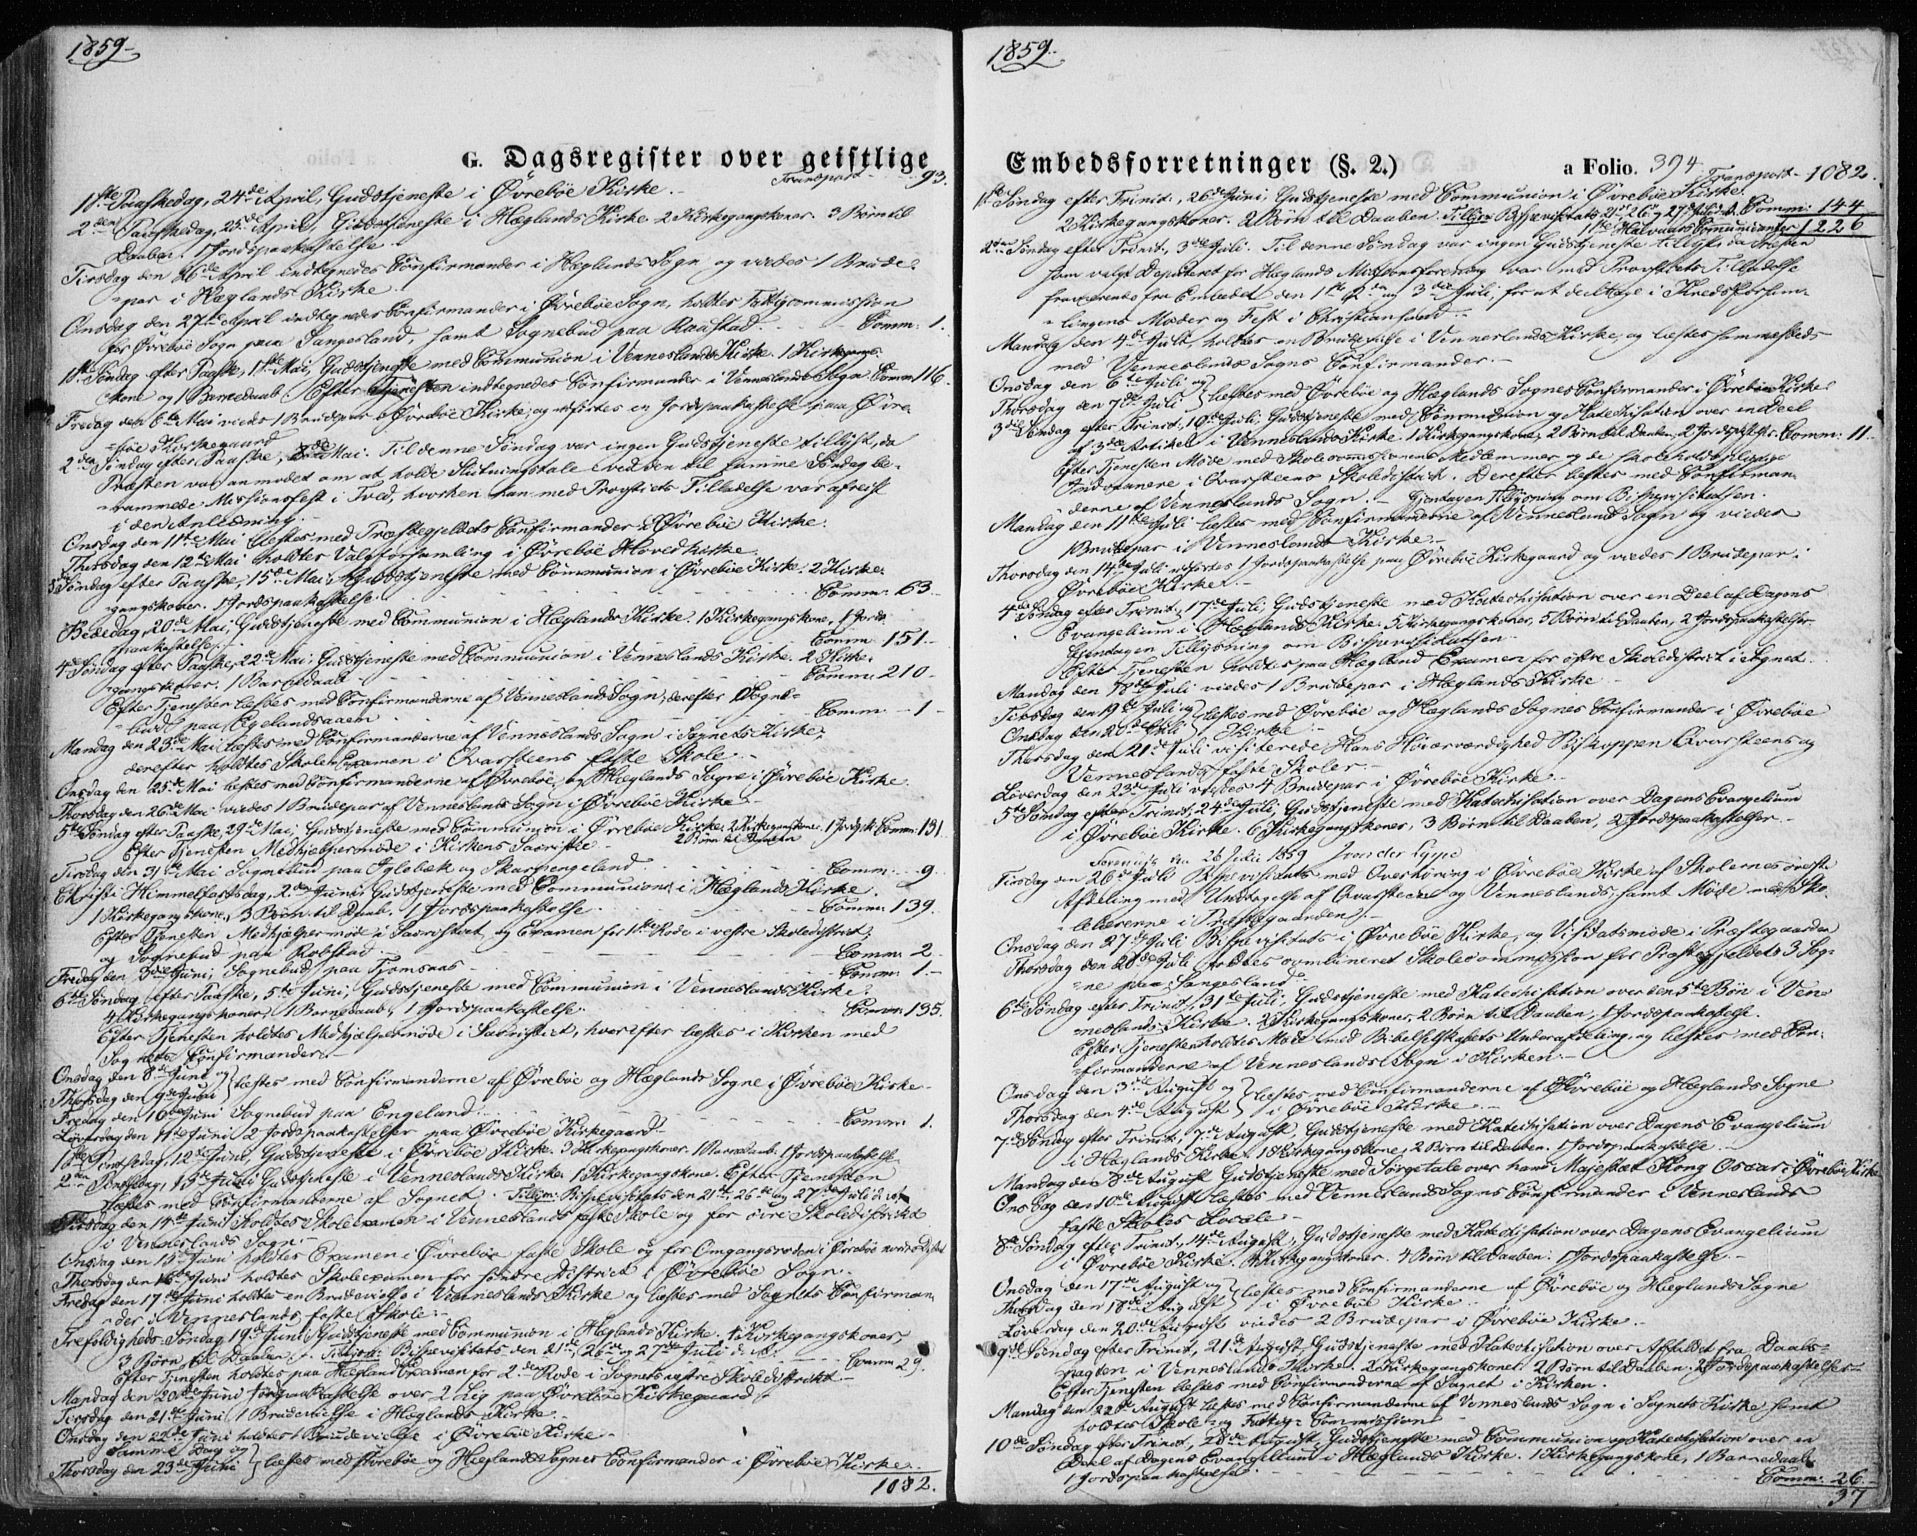 1859.
G. Dagsregister over geistlige
Transport 93.
1ste Paaskedag, 24de April, Gudstjeneste i Øvrebøe Kirke.
2den Paaskedag, 25de April, Gudstjeneste i Hæglands Kirke. 2 Kirkegangskoner. 3 Børn til
Daaben. 1 Jordspaakastelse.
Tirsdag den 26de April indtegnedes Confirmander i Hæglands Sogn og viedes 1 Brude-
par i Hæglands Kirke.
Onsdag den 27de April indtegnedes Confirmander i Øvrebøe Sogn, holdtes Fattigcommission
for Øvrebøe Sogn paa Sangesland, samt Sognebud paa Raastad. Comm: 1.
1ste Søndag efter Paaske, 1ste Mai, Gudstjeneste med Communion i Venneslands Kirke. 1 Kirkegangs-
kone og 1 Barnedaab. Efter Tjenesten indtegnedes Confirmander i Venneslands Sogn. Comm: 116.
Fredag den 6te Mai viedes 1 Brudepar i Øvrebøe Kirke, og udførtes en Jordspaakastelse paa Øvre-
bøe Kirkegaard.
2den Søndag efter Paaske, 8de Mai. Til denne Søndag var ingen Gudstjeneste tillyst, da
Præsten var anmodet om at holde Slutningstale ved den til samme Søndag be-
rammede Missionsfest i Tved, hvorhen han med Provstiets Tilladelse var afreist
i den Anledning.
Onsdag den 11te Mai læstes med Præstegjeldets Confirmander i Øvrebøe Kirke.
Thorsdag den 12te Mai holdtes Valgforsamling i Øvrebøe Hovedkirke.
3die Søndag efter Paaske, 15de Mai, Gudstjeneste med Communion i Øvrebøe Kirke. 2 Kirke-
gangskoner. 1 Jordspaakastelse. Comm: 63.
Bededag, 20de Mai, Gudstjeneste med Communion i Hæglands Kirke. 1 Kirkegangskone, 1 Jords-
paakastelse. Comm: 151.
4de Søndag efter Paaske, 22de Mai, Gudstjeneste med Communion i Venneslands Kirke. 2 Kirke-
gangskoner. 1 Barnedaab. Comm: 210.
Efter Tjenesten læstes med Confirmanderne af Venneslands Sogn, derefter Sogne-
bud paa Egelandsaaen. Comm: 1
Mandag den 23de Mai læstes med Confirmanderne af Venneslands Sogn i Sognets Kirke,
derefter holdtes Skoleexamen i Qvarsteens faste Skole.
Onsdag den 25de Mai læstes med Confirmanderne af Øvrebøe og Hæglands Sogne i Øvrebøe Kirke.
Thorsdag den 26de Mai viedes 1 Brudepar af Venneslands Sogn i Øvrebøe Kirke.
5te Søndag efter Paaske, 29de Mai, Gudstjeneste med Communion i Øvrebøe Kirke. 2 Kirkegangskoner. 1 Jordsp.k. Comm: 131
2 Børn til Daaben
Efter Tjenesten Medhjelpermøde i Kirkens Sacristie.
Tirsdag den 31te Mai Sognebud paa Iglebæk og Skarpengeland. Comm: 9.
Christi Himmelfartsdag, 2den Juni, Gudstjeneste med Communion i Hæglands Kirke.
1 Kirkegangskone, 3 Børn til Daab, 1 Jordspaakastelse. Comm: 139.
Efter Tjenesten Medhjælpermøde i Sacristiet, og Examen for 1ste Rode i vestre Skoledistrict,
og Sognebud paa Robstad. Comm: 2.
Fredag den 3die Juni, Sognebud paa Tjomsaas. Comm: 1.
6te Søndag efter Paaske, 5te Juni, Gudstjeneste med Communion i Venneslands Kirke.
4 Kirkegangskoner, 1 Barnedaab, 1 Jordspaakastelse. Comm: 135.
Efter Tjenesten holdtes Medhjelpermøde i Sacristiet, hvorefter læstes i Kirken med
Sognets Confirmander.
Onsdag den 8de Juni og
Thorsdag den 9de Juni } læstes med Confirmanderne af Øvrebøe og Hæglands Sogne i Øvrebøe Kirke.
Fredag den 10de Juni Sognebud paa Engeland. Comm: 1.
Løverdag den 11te Juni 2 Jordspaakastelser paa Øvrebøe Kirkegaard.
1ste Pintsedag, 12te Juni, Gudstjeneste i Øvrebøe Kirke. 3 Kirkegangskoner. 1 Barnedaab. 1 Jordspaakastelse.
2den Pintsedag, 13de Juni Gudstjeneste i Venneslands Kirke. 1 Kirkegangskone. Efter Tjenesten
læstes med Confirmanderne af Sognet. Tillyst: Bispevisitats den 21de, 26de og 27de Juli d. A.
Tirsdag den 14de Juni holdtes Skoleexamen i Venneslands faste Skole og for øvre Skoledistrikt
i Venneslands Sogn.
Onsdag den 15de Juni holdtes Examen i Øvrebøe faste Skole og for Omgangsroden i Øvrebøe nordre District
Thorsdag den 16de Juni holdtes Skoleexamen for søndre District i Øvrebøe Sogn.
Fredag den 17de Juni holdtes en Brudevielse i Venneslands Kirke og læstes med Sognets Confirman-
der i Venneslands faste Skole.
Trefoldigheds Søndag 19de Juni, Gudstjeneste med Communion i Hæglands Kirke. 4 Kirkegangskoner
3 Børn til Daaben. Tillyst: Bispevisitats den 21de, 26de og 27de Juli d. A. Comm: 29.
Efter Tjenesten holdtes paa Hægland Examen for 2den Rode i Sognets vestre Skoledistrikt.
Mandag den 20de Juni Jordspaakastelse over 2 Lig paa Øvrebøe Kirkegaard.
Tirsdag den 21de Juni 1 Brudevielse i Hæglands Kirke.
Onsdag den 22de Juni holdtes 1 Brudevielse i Øvrebøe Kirke.
Samme Dag og
Thorsdag den 23de Juni } læstes med Øvrebøe og Hæglands Sognes Confirmander i Øvrebøe Kirke.
1082.
1859.
Embedsforretninger (§. 2.) a Folio. 394
Transport 1082.
1ste Søndag efter Trinit., 26de Juni, Gudstjeneste med Communion i Øvrebøe Kirke.
2 Kirkegangskoner. 2 Børn til Daaben. Tillyst: Bispevisitats 21de, 26de og 27de Juli d. A. Comm: 144
1ste Halvaars Communicanter 1226
2den Søndag efter Trinit., 3die Juli. Til denne Søndag var ingen Gudstjeneste tillyst da Præsten
som valgt Deputeret for Hæglands Missionsforening var med Provstiets Tilladelse
fraværende fra Embedet den 1ste, 2den og 3die Juli, for at deeltage i Kredsforsam-
lingens Møder og Fest i Christiansand.
Mandag den 4de Juli holdtes en Brudevielse i Venneslands Kirke, og læstes sammesteds
med Venneslands Sogns Confirmander.
Onsdag den 6te Juli og
Thorsdag den 7de Juli } læstes med Øvrebøe og Hæglands Sognes Confirmander i Øvrebøe Kirke.
3die Søndag efter Trinit., 10de Juli, Gudstjeneste med Communion og Katechisation over en Deel
af 3die Artikel i Venneslands Kirke. 1 Kirkegangskone, 2 Børn til Daaben, 2 Jordspaakastelser. Comm: 11.
Efter Tjenesten Møde med Skolecommissionens Medlemmer og de skoleholdspligtige
Indvaanere i Qvarsteens Skoledistrict. Derefter læstes med Confirman-
derne af Venneslands Sogn. Gjentagen Tillysning om Bispevisitatsen.
Mandag den 11te Juli læstes med Confirmanderne af Venneslands Sogn og viedes
1 Brudepar i Venneslands Kirke.
Thorsdag den 14de Juli udførtes 1 Jordspaakastelse paa Øvrebøe Kirkegaard og viedes 1 Brudepar i
Øvrebøe Kirke.
4de Søndag efter Trinit., 17de Juli, Gudstjeneste med Katechisation over en Deel af Dagens
Evangelium i Hæglands Kirke. 5 Kirkegangskoner, 5 Børn til Daaben, 2 Jordspaakastelser.
Gjentagen Tillysning om Bispevisitatsen.
Efter Tjenesten holdtes paa Hægland Examen for østre Skoledistrict i Sognet.
Mandag den 18de Juli viedes 1 Brudepar i Hæglands Kirke.
Tirsdag den 19de Juli og
Onsdag den 20de Juli } læstes med Øvrebøe og Hæglands Sognes Confirmander i Øvrebøe
Kirke.
Thorsdag den 21de Juli visiterede Hans Høiærværdighed Biskoppen Qvarsteens og
Venneslands faste Skoler.
Løverdag den 23de Juli viedes 4 Brudepar i Øvrebøe Kirke.
5te Søndag efter Trinit., 24de Juli, Gudstjeneste med Katechisation over Dagens Evangelium
i Øvrebøe Kirke. 6 Kirkegangskoner, 3 Børn til Daaben, 2 Jordspaakastelser.
Foreviist den 26 Juli 1859 J von der Lippe
Tirsdag den 26de Juli Bispevisitats med Overhøring i Øvrebøe Kirke af Skolernes øverste
Afdeling med Undtagelse af Qvarsteens og Venneslands, samt Møde med Sko-
lelærerne i Præstegaarden.
Onsdag den 27de Juli Bispevisitats i Øvrebøe Kirke, og Visitatsmøde i Præstegaarden
Thorsdag den 28de Juli holdtes combineret Skolecommission for Præstegjeldets 3 Sog-
ne paa Sangesland.
6te Søndag efter Trinit., 31te Juli, Gudstjeneste med Katechisation over den 5te Bøn i Ven-
neslands Kirke. 2 Kirkegangskoner, 2 Børn til Daaben, 1 Jordspaakastelse.
Efter Tjenesten holdtes Møde med Bibelselskabets Underafdeling, og læstes med Con-
firmanderne af Venneslands Sogn i Kirken.
Onsdag den 3die August og
Thorsdag den 4de August } læstes med Confirmanderne af Øvrebøe og Hæglands Sogne
i Øvrebøe Kirke.
7de Søndag efter Trinit., 7de August, Gudstjeneste med Katechisation over Dagens Evangelium
i Hæglands Kirke. 1 Kirkegangskone, 2 Børn til Daaben. 1 Jordspaakastelse.
Mandag den 8de August Gudstjeneste med Sørgetale over hans Majestæt Kong Oscar i Øvrebøe Kirke
Onsdag den 10de August læstes med Venneslands Sogns Confirmander i Venneslands
faste Skoles Locale.
8de Søndag efter Trinit., 14de August, Gudstjeneste med Katechisation over Dagens Evangelium
i Øvrebøe Kirke. Kirkegangskoner. 4 Børn til Daaben. 1 Jordspaakastelse.
Onsdag den 17de August og
Thorsdag den 18de August } læstes med Confirmanderne af Øvrebøe og Hæglands Sogne
i Øvrebøe Kirke.
Løverdag den 20de August viedes 2 Brudepar i Øvrebøe Kirke.
9de Søndag efter Trinit., 21de August, Gudstjeneste med Katechisation over Affaldet fra Daabs-
pagten i Venneslands Kirke. 2 Kirkegangskoner. 2 Børn til Daaben. 2 Jordspaakastelser.
Efter Tjenesten læstes med Confirmanderne af Sognet i Kirken.
Mandag den 22de August læstes med Confirmanderne af Venneslands Sogn i Sognets Kirke, samt
holdtes Skole- og Fattig-Commission.
10de Søndag efter Trinit., 28de August, Gudstjeneste med Communion og Katechisation over en
Deel af Dagens Evangelium i Hæglands Kirke. 1 Kirkegangskone, 1 Barnedaab
1 Jordspaakastelse. Comm: 26.
37